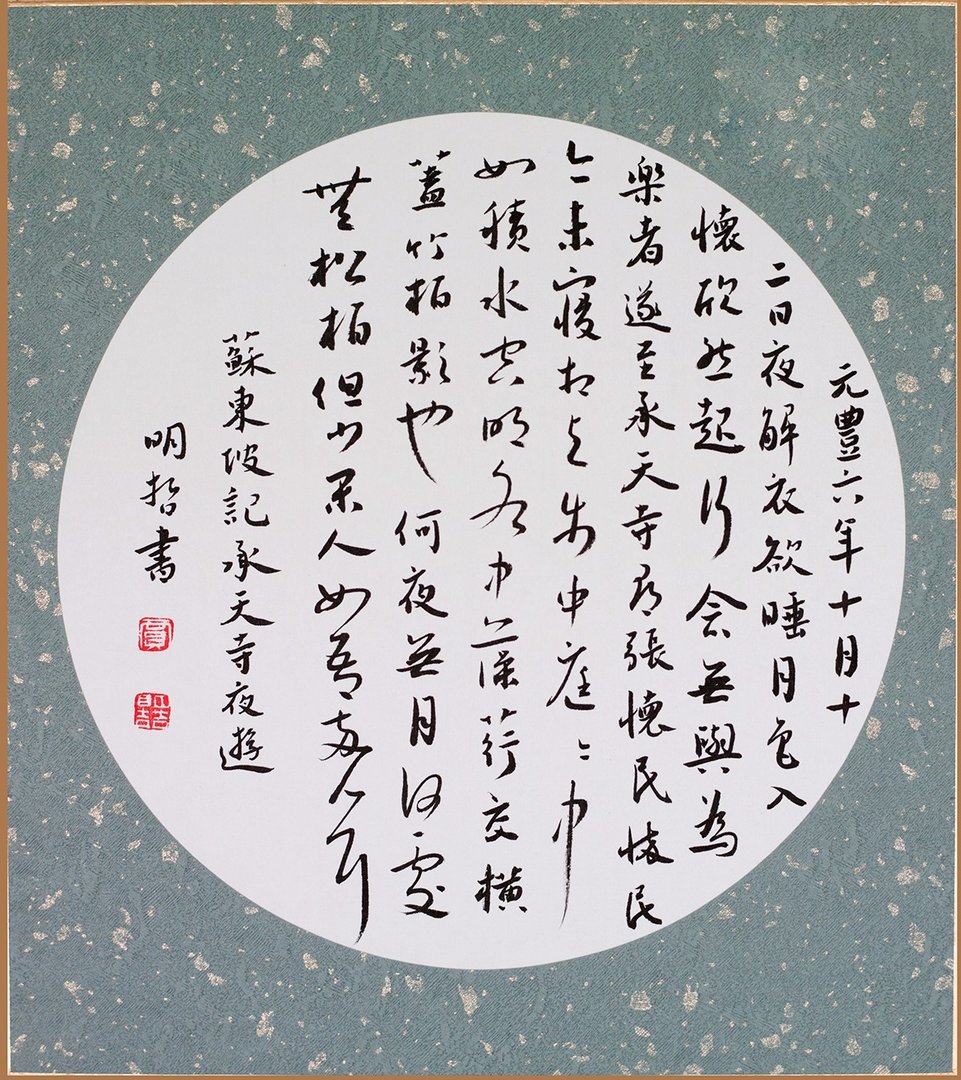 元豐六年十月十
二日夜解衣欲睡月色入
懷欣然起行念無與為
樂者遂至承天寺尋張懷民懷民
亦未寢相与步中庭〻中
如積水空明水中藻荇交橫
蓋竹柏影也何夜無月何處
無松柏但少閑人如吾兩人耳
蘇東坡記承天寺夜遊
明哲書